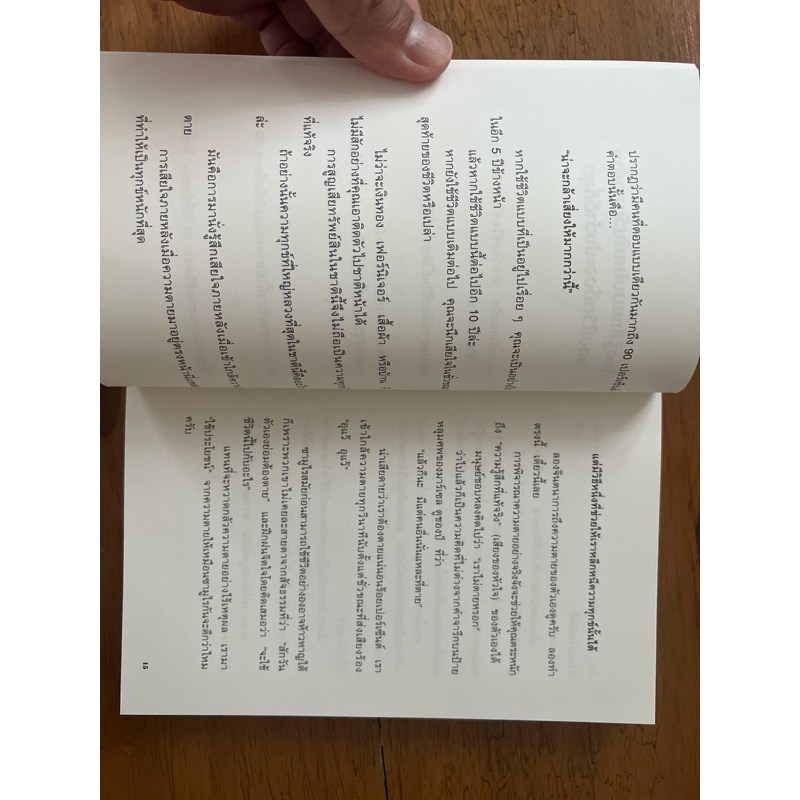 ปรากฏว่ามีคนที่ตอบแบบเดียวกันมากถึง 90 เปอร์เซ็น
คำตอบนั้นคือ...
"น่าจะกล้าเสี่ยงให้มากกว่านี้"
หากใช้ชีวิตแบบที่เป็นอยู่ไปเรื่อย ๆ คุณจะเป็นอย่างไร
ในอีก 5 ปีข้างหน้า
แล้วหากใช้ชีวิตแบบนี้ต่อไปอีก 10 ปีล่ะ
หากยังใช้ชีวิตแบบเดิมต่อไป คุณจะนึกเสียใจในชั่วขณะ
สุดท้ายของชีวิตหรือเปล่า
ไม่ว่าจะเงินทอง เฟอร์นิเจอร์ เสื้อผ้า หรือบ้าน
ไม่มีสักอย่างที่คุณเอาติดตัวไปชาติหน้าได้
การสูญเสียทรัพย์สินในชาตินี้จึงไม่ถือเป็นความทุกข์
ที่แท้จริง
ถ้าอย่างนั้นความทุกข์ที่ใหญ่หลวงที่สุดในชาตินี้คืออะไร
ล่ะ
มันคือการมานั่งรู้สึกเสียใจภายหลังเมื่อเข้าใกล้ความ
ตาย
การเสียใจภายหลังเมื่อความตายมาอยู่ตรงหน้านี่แหละ
ที่ทำให้เป็นทุกข์หนักที่สุด
แต่มีวิธีหนึ่งที่ช่วยให้เราหลีกหนีความทุกข์นั้นได้
ลองจินตนาการถึงความตายของตัวเองดูครับ ลองทำ
ตรงนี้ เดี๋ยวนี้เลย
การพิจารณาความตายอย่างจริงจังจะช่วยให้คุณตระหนัก
ถึง "ความรู้สึกที่แท้จริง" (เสียงของหัวใจ) ของตัวเองได้
มนุษย์ชอบหลงคิดไปว่า "เราไม่ตายหรอก"
ว่าไปแล้วก็เป็นความคิดที่ไม่ต่างจากคำจารึกบนป้าย
หลุมศพของมาร์เซล ดูชองป์ ที่ว่า
"แล้วก็นะ มีแต่คนอื่นนั่นแหละที่ตาย"
น่าเสียดายว่าเราต้องตายแน่นอนร้อยเปอร์เซ็นต์ เรา
เข้าใกล้ความตายทุกวินาทีนับตั้งแต่ชั่วขณะที่ส่งเสียงร้อง
"อุแว้ อุแว้"
ซามูไรสมัยก่อนสามารถใช้ชีวิตอย่างองอาจห้าวหาญได้
ก็เพราะพวกเขาไม่เคยละสายตาจากสัจธรรมที่ว่า "สักวัน
ตัวเองย่อมต้องตาย" และฝึกฝนจิตใจโดยคิดเสมอว่า "จะใช้
ชีวิตนี้ไปกับอะไร"
แทนที่จะหวาดกลัวความตายอย่างไร้เหตุผล เรามา
"ใช้ประโยชน์" จากความตายให้เหมือนซามูไรกันจะดีกว่าไหม
ครับ
15